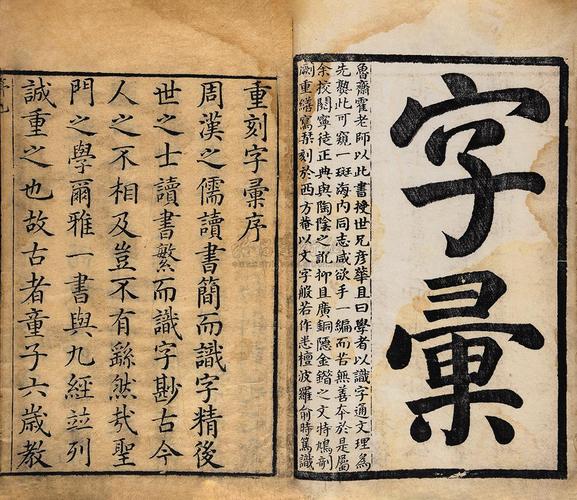 字彙
魯齋霍老師以此書授世兄彦華且曰學者以識字通文理為
先槩此可窺一斑海内同志咸欲手一編而苦無善本於是屬
余挍閱寧徒正典與陶陰之訛抑且廣銅隱金鍇之文特鳩剞
劂重繕寫栞刻於西方菴以文字般若作悉檀波羅俞時篤識
重刻字彙序
周漢之儒讀書簡而識字精後
世之士讀書繁而識字尠古今
人之不相及豈不有繇然㢤聖
門之學爾雅一書與九經並列
誠重之也故古者童子六歲教